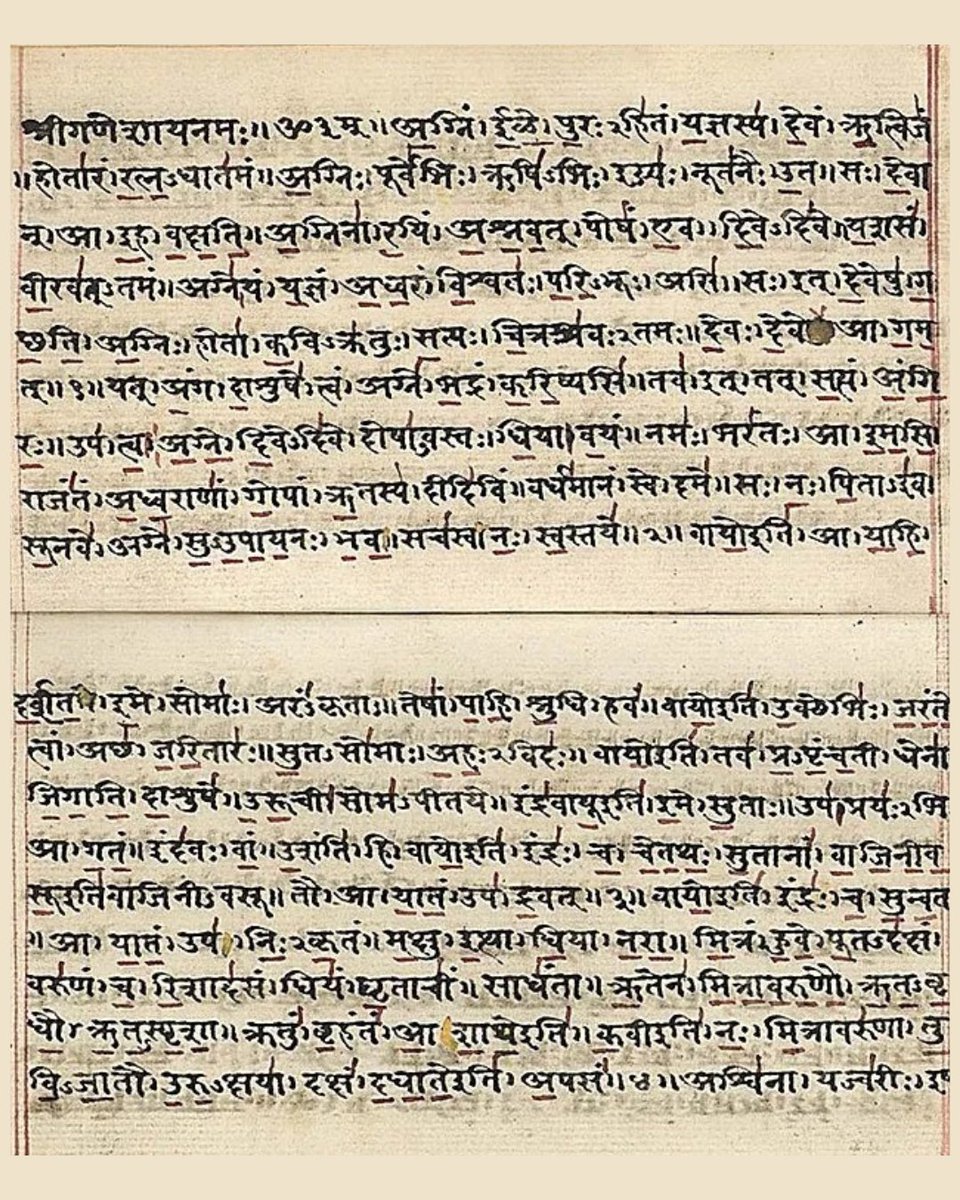 श्रीगणेशायनमः॥ॐ३म्॥अ॒ग्निं।ई॒ळे॒।पु॒रः२हि॑तं।य॒ज्ञस्य॑।दे॒वं।ऋ॒त्विजं॑
॥होता॑रं।र॒त्न॒ऽधात॑मं॥अ॒ग्निः।पूर्वे॑भिः।ऋषि॑ऽभिः।ईड्यः॑।नूत॑नैः।उ॒त॥सः।दे॒वा
न्।आ।इ॒ह।व॒क्ष॒ति॒॥अ॒ग्निना॑।र॒यिं।अ॒श्न॒व॒त्।पोषं॑।ए॒व।दि॒वेऽदि॑वे॥य॒शसं॑
वी॒रव॑त्ऽतमं॥अग्ने॒।यं।य॒ज्ञं।अ॒ध्व॒रं।वि॒श्वतः॑।प॒रि॒ऽभूः।असि॑॥सः।इत्।दे॒वेषु॑।ग॒
च्छ॒ति॒।अ॒ग्निः।होता॑।क॒विऽक्र॑तुः।स॒त्यः।चि॒त्रश्र॑वः२तमः॥दे॒वः।दे॒वे आ।ग॒म॒
त्॥१॥यत्।अं॒ग।दा॒शुषे॑।त्वं।अग्ने॑।भ॒द्रं।क॒रि॒ष्यसि॑॥तव॑।इत्।तत्।स॒त्यं।अं॒गि॒
रः॒॥उप॑।त्वा॒।अ॒ग्ने॒।दि॒वेऽदि॑वे।दोषा॑ऽवस्तः।धि॒या।व॒यं॥नमः॑।भरं॑तः।आ।इ॒म॒सि॒
राजं॑तं।अ॒ध्व॒राणां॑।गो॒पां।ऋ॒तस्य॑।दीदि॑विं॥वर्ध॑मानं।स्वे।दमे॑॥सः।नः॒।पि॒ताऽइ॑व
सू॒नवे॑।अग्ने॑।सु॒ऽउ॒पा॒य॒नः।भ॒व॒॥सच॑स्व।नः॒।स्व॒स्तये॑॥२॥वायो॒इति॑।आ।या॒हि॒
द॒र्श॒त॒ इ॒मे।सोमाः॑।अरं॑ऽकृताः॥तेषां॑।पा॒हि॒।श्रु॒धि।हवं॑॥वायो॒इति॑।उ॒क्थेभिः॑।ज॒रं॒ते॒
त्वां।अच्छ॑।ज॒रि॒तारः॑॥सु॒तऽसो॑माः।अ॒हः॒२विदः॑॥वायो॒इति॑।तव॑।प्र॒ऽपृं॒च॒ती।धेना॑
जि॒गा॒ति॒।दा॒शुषे॑॥उ॒रू॒ची।सोम॑ऽपीतये॥इंद्र॑वायू॒इति॑।इ॒मे।सु॒ताः॥उप॑।प्रयः॑२भि
आ।ग॒तं॒॥इंद॑वः।वां॒।उ॒शंति॑।हि॥वायो॒इति॑।इंद्रः॑।च॒।चे॒त॒थः॒।सु॒तानां॑।वा॒जि॒नी॒व॒
सू॒इति॑वाजिनीऽवसू॥तौ।आ।या॒तं॒।उप॑।द्र॒वत्॥३॥वायो॒इति॑।इंद्रः॑।च॒।सु॒न्व॒त
॥आ।या॒तं॒।उप॑।निः॒२कृतं॥म॒क्षु।इ॒त्था।धि॒या।न॒रा॒॥मि॒त्रं।हु॒वे॒।पू॒तऽद॑क्षं।
वरु॑णं।च॒।रि॒शाद॑सं॥धियं॑।घृ॒ताचीं॑॥साधं॑ता॥ऋ॒तेन॑।मि॒त्रा॒व॒रु॒णौ॒।ऋ॒त॒ऽवृ॒
धौ॒।ऋ॒त॒ऽस्पृ॒शा॒॥क्रतुं॑।बृ॒हंतं॑।आ॒ शा॒थे॒इति॑॥क॒वीइति॑।नः॒।मि॒त्रावरु॑णा।तु॒
वि॒ऽजा॒तौ।उ॒रु॒ऽक्षया॑।दक्षं॑।द॒धा॒ते॒इति॑।अ॒पसं॑॥४॥अश्वि॑ना।यज्व॑रीः।इ